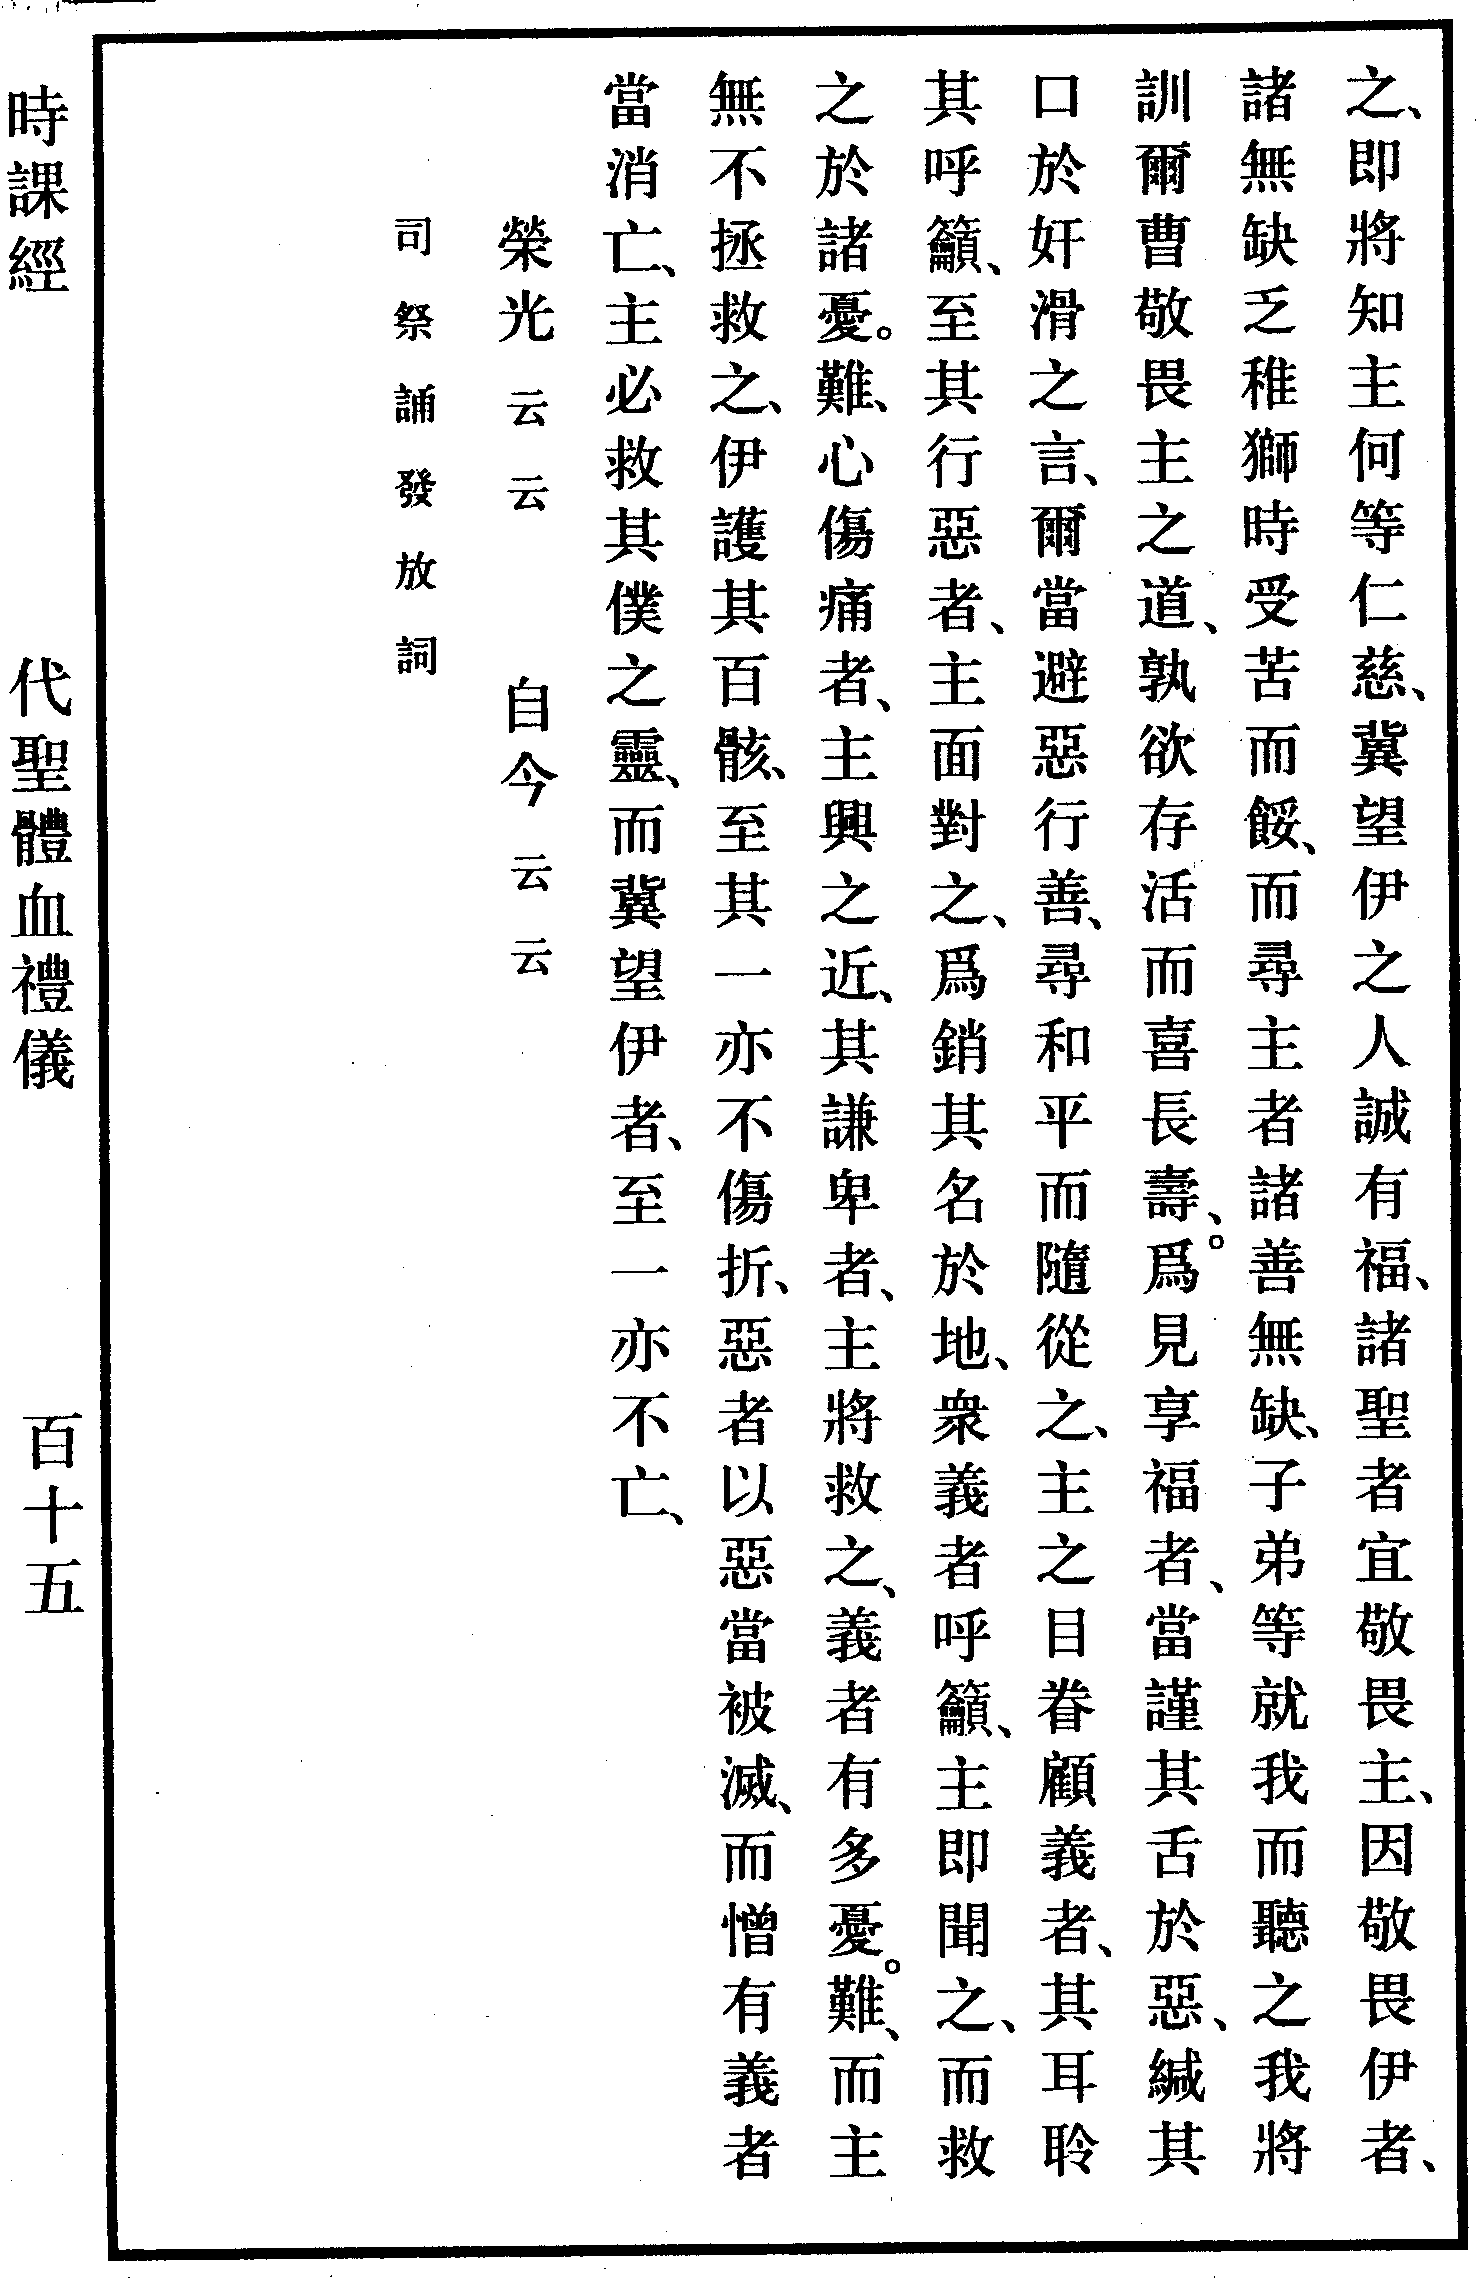 之、即將知主何等仁慈、冀望伊之人誠有福、諸聖者宜敬畏主、因敬畏伊者、
諸無缺乏稚獅時受苦而餒、而尋主者諸善無缺、子弟等就我而聽之我將
訓爾曹敬畏主之道、孰欲存活而喜長壽、。爲見享福者、當謹其舌於惡、緘其
口於奸滑之言、爾當避惡行善、尋和平而隨從之、主之目眷顧義者、其耳聆
其呼籲、至其行惡者、主面對之、爲銷其名於地、衆義者呼籲、主即聞之、而救
之於諸憂。難、心傷痛者、主興之近、其謙卑者、主將救之、義者有多憂。難、而主
無不拯救之、伊護其百骸、至其一亦不傷折、惡者以惡當被滅、而憎有義者
當消亡、主必救其僕之靈、而冀望伊者、至一亦不亡、
榮光云云 自今云云
司祭誦發放詞
時課經 代聖體血禮儀 百十五